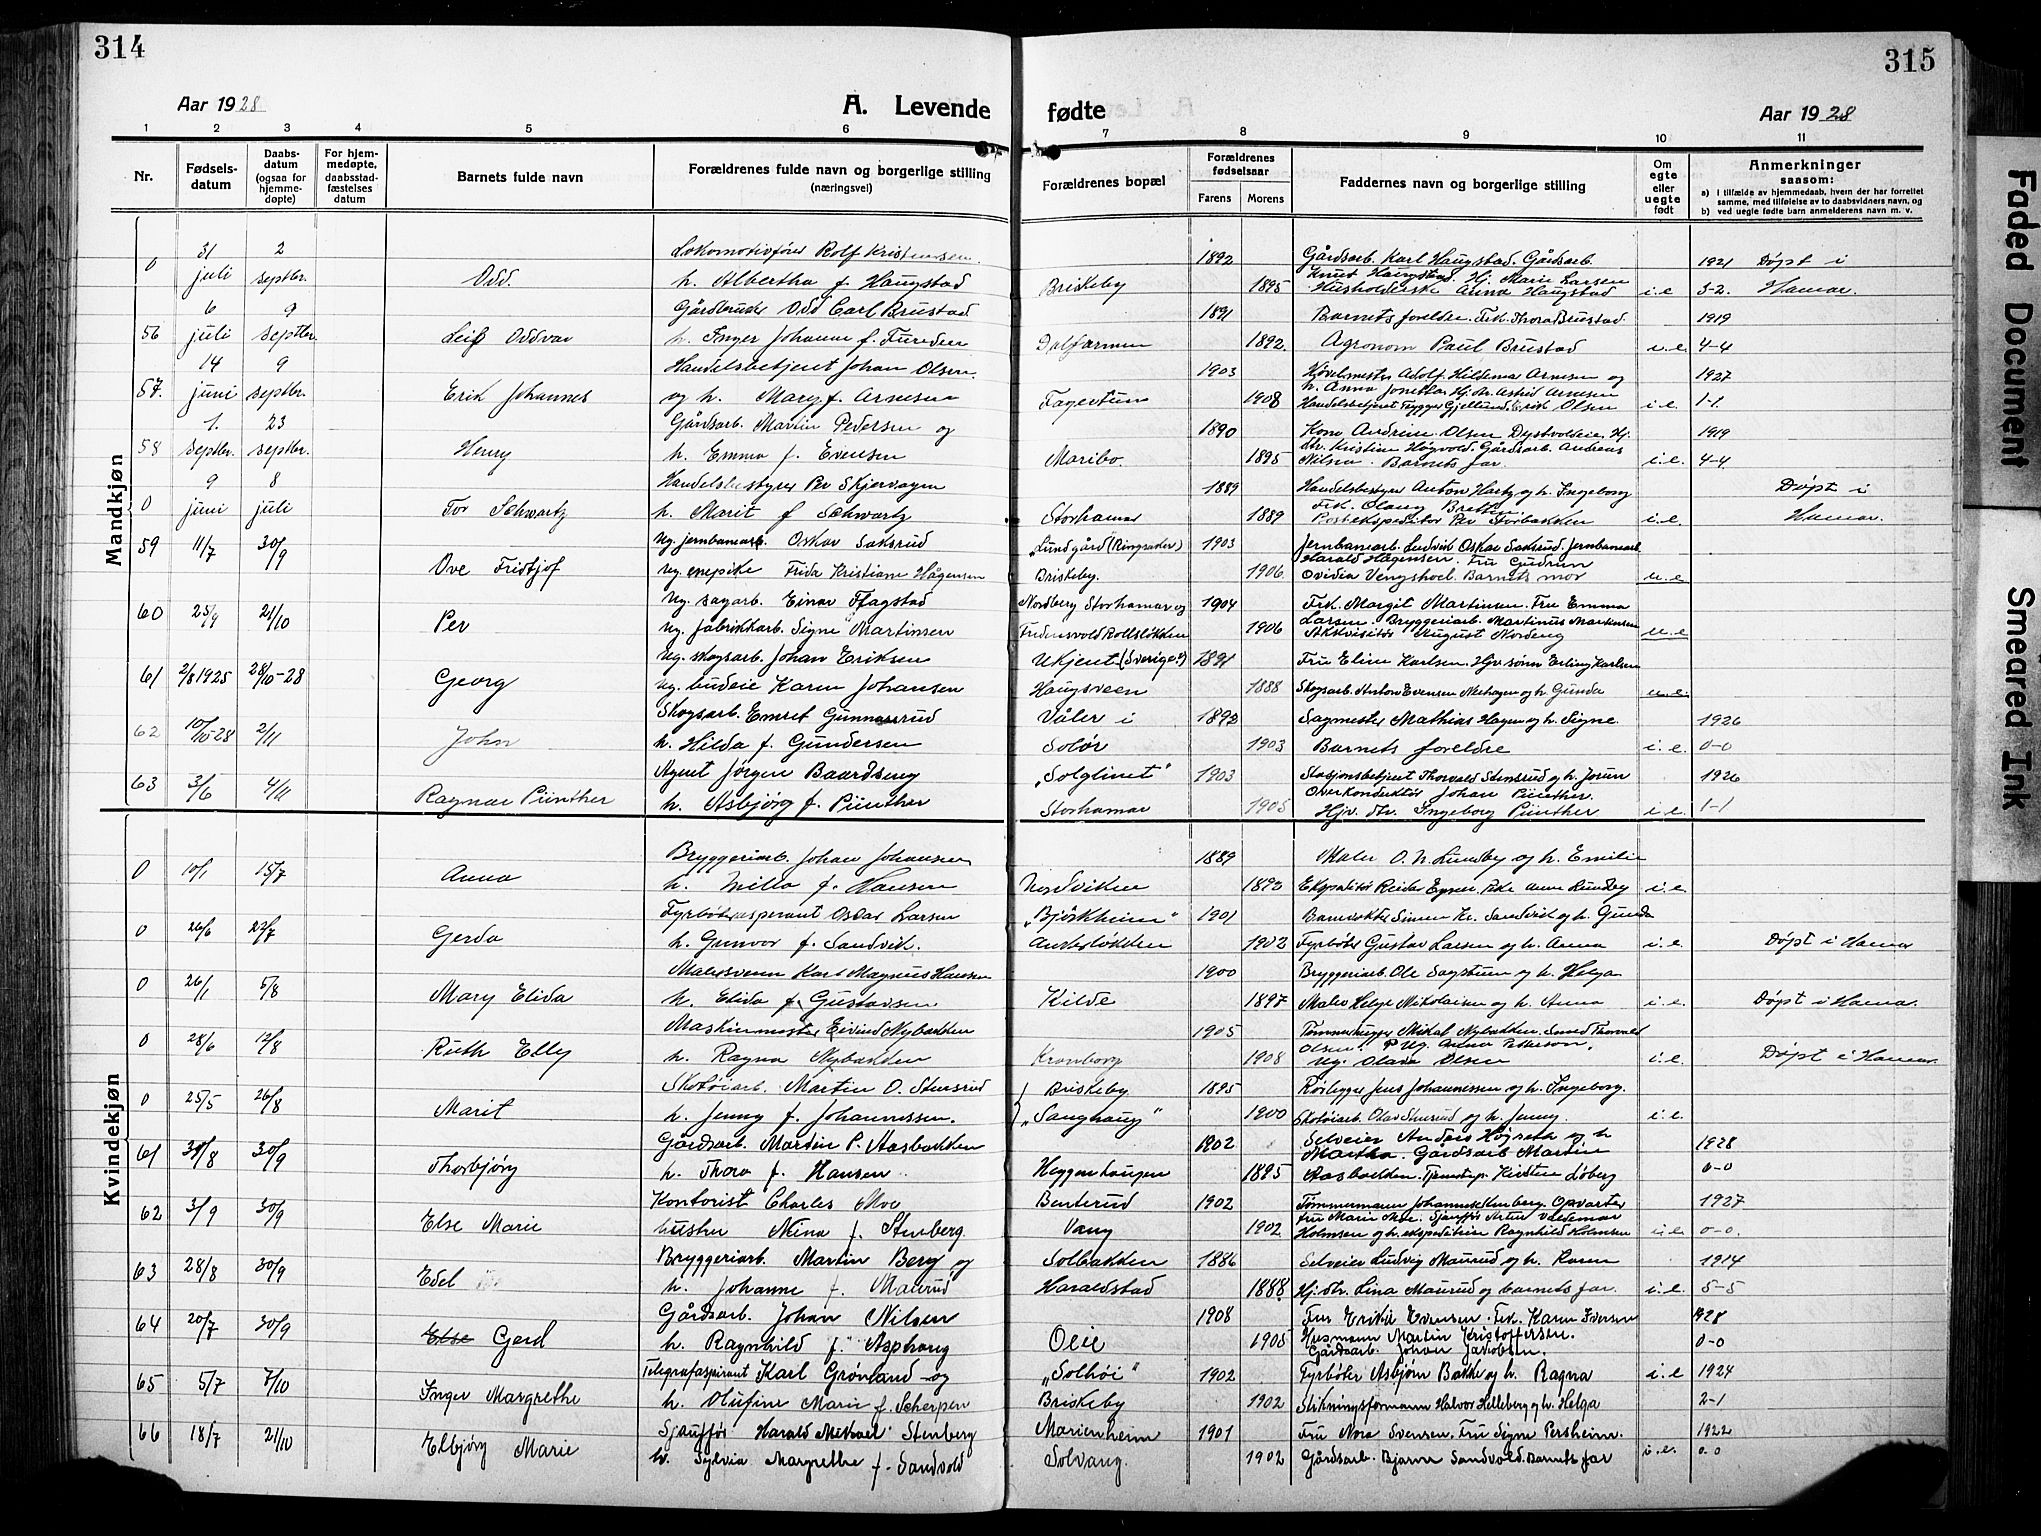 314
Aar 1928
A. Levende
1 2 3 4 5 6
Nr. Fødselsdatum Daabsdatum (ogsaa for hjemmedøpte) For hjemmedøpte, daabsstadfæstelses datum Barnets fulde navn Forældrenes fulde navn og borgerlige stilling (næringsvei)
Mandkjøn
Lokomotivfører Rolf Kristiansen
0 31 juli 2 septbr. Odd. h. Albertha f. Haugstad
Gårdbruker Odd Carl Brustad
56 6 juli 9 septbr. Leif Oddvar h. Inger Johanne f. Fureden
Handelsbetjent Johan Olsen
57. 14 juni 9 septbr. Erik Johannes og h. Mary f. Arnesen
Gårdsarb. Martin Pedersen og
58 1. septbr. 23 septbr. Henry h. Emma f. Evensen
Handelsbestyrer Per Skjervagen
0 9 juni 8 juli Tor Schwartz h. Marit f. Schwartz
59 11/7 30/9 Ove Fridtjof Ug. jernbanearb. Oskar Saksrud
Ug. enepike Frida Kristiane Hågensen
60 25/9 21/10 Per Ug. sagarb. Einar Fagstad
Ug. fabrikkarb. Signe Martinsen
61 2/8 1925 28/10-28 Georg Ug. skogsarb. Johan Eriksen
Ug. budeie Karen Johansen
62 10/10-28 2/11 John Skogsarb. Emret Gunnarsrud
h. Hilda f. Gundersen
63 3/6 4/11 Ragnar Pünther Agent Jørgen Baardseng
h. Asbjørg f. Pünther
Kvindekjøn
0 10/1 15/7 Anna Bryggeriarb. Johan Johansen
h. Milla f. Hansen
0 26/6 22/7 Gerda Fyrbøteraspirant Oscar Larsen
h. Gunvor f. Sandvik.
0 26/1 5/8 Mary Elida Malersvenn Karl Magnus Hansen
h. Elida f. Gustavsen
0 28/6 12/8 Ruth Elly Maskinmester Eivind Nybakken
h. Ragna Nybakken
0 25/5 26/8 Marit Skotøiarb. Martin O. Stensrud
h. Jenny f. Johannessen.
61 31/8 30/9 Thorbjørg Gårdsarb. Martin P. Aasbakken
h. Thora f. Hansen
62 3/9 30/9 Else Marie Kontorist Charles Moe
hustru Nina f. Stenberg
63 28/8 30/9 Edel Bryggeriarb. Martin Berg og
h. Johanne f. Malerud
64 20/7 30/9 Else Gerd Gårdsarb. Johan Nilsen
h. Ragnhild f. Asphaug
65 5/7 7/10 Inger Margrethe Telegrafaspirant Karl Grønland og
h. Olufine Marie f. Scherpen
66 18/7 21/10 Elbjørg Marie Sjauffør Harald Mikael Stenberg
h. Sylvia Margrethe f. Sandvold
315
fødte
Aar 1928
7 8 9 10 11
Forældrenes bopæl Forældrenes fødselsaar Farens Morens Faddernes navn og borgerlige stilling Om egte eller uegte født Anmerkninger saasom:
a) I tilfælde av hjemmedaab, hvem der har forrettet samme, med tilføielse av to daabsvidners navn, og
b) ved uegte fødte barn anmelderens navn m. v.
1892 Gårdsarb. Karl Haugstad. Gårdsarb. 1921 Døpt i
Knut Haugstad. Hj. Marie Larsen
Briskeby 1895 Husholderske Anna Haugstad i.e 3-2. Hamar.
1891 Barnets foreldre. Frk. Thora Brustad. 1919
Dalfarmen 1892. Agronom Paul Brustad i.e. 4-4
1903 Høvelmester Adolf Hildemar Arnesen og 1927
h. Anna Jonetta. Hj. dr. Astrid Arnesen
Fagertun 1908 Handelsbetjent Trygge Gjellund, Erik Olsen i.e. 1-1.
1890 Kone Andrine Olsen Dystvoldeie. Hj. 1919
dtr. Kristine Høgvold. Gårdsarb. Andreas
Maribo. 1895 Nilsen. Barnets far. i.e. 4-4
1889 Handelsbestyrer Anton Hartz og h. Ingeborg Døpt i
Frk. Olaug Bretten
Storhamar 1889 Postekspeditør Per Storbakken i.e. Hamar.
„Lundgård (Ringsaker) 1903 Jernbanearb. Ludvik Oskar Saksrud. Jernbanearb.
Harald Hågensen. Fru Gudrun
Briskeby. 1906. Ovidia Vengshoel. Barnets mor u.e
Nordberg Storhamar og 1904 Frk. Margit Martinsen. Fru Emma
Larsen. Bryggeriarb. Martinus Martinsen
Fredensvold Rollsløkken 1906 Akkvisitør August Nordeng u.e
Ukjent (Sverige?) 1891 Fru Eline Karlsen. Hjv. sønn Erling Karlsen
Haugsveen 1888 Skogsarb. Anton Evensen Neshagen og h. Gunda u.e.
Våler i 1893 Sagmester Mathias Hagen og h. Signe. 1926
Solør 1903 Barnets foreldre i.e. 0-0
„Solglint" 1903 Stasjonsbetjent Thorvald Stensrud og h. Jorun 1926
Overkonduktør Johan Pünther.
Storhamar 1905 Hjv. dtr. Ingeborg Pünther i.e. 1-1
1889 Maler O. N. Lundby og h. Emilie
Nordviken 1893 Ekspeditør Reidar Eggen. Frk. Anna Lundby i.e
„Bjørkheim" 1901 Banevokter Simen Kr. Sandvik og h. Gunda
Ankerløkken 1902 Fyrbøter Gustav Larsen og h. Anna i.e. Døpt i Hamar
1900 Bryggeriarb. Ole Sagstuen og h. Helga
Kilde 1897 Maler Helge Mikolaisen og h. Anna i.e. Døpt i Hamar.
1905 Tømmerhugger Mikal Nybakken. Smed Thorvald
Olsen. Ug. Anna Pettersen.
Kronborg 1908 Ug. Olava Olsen i.e. Døpt i Hamar
Briskeby 1895 Rørlegger Jens Johannessen og h. Ingeborg.
„Sanghaug" 1900 Skotøiarb. Olav Stensrud og h. Jenny. i.e.
1902 Selveier Anders Høgreth og h. 1928
Martha. Gårdsarb Martin
Heggenhaugen 1895 Aasbakken. Tjenestep. Kirsten Løberg 0-0
Benterud 1902 Tømmermann Johannes Stenberg. Opvarter 1927
Fru Marie Moe. Sjauffør Artur Valdemar
Vang 1902 Holmsen og h. ekspeditrise Ragnhild Holmsen i.e 0-0.
Solbakken 1886 Selveier Ludvig Maurud og h. Karen 1914
Haraldstad 1888 Hj. dtr. Lina Maurud og barnets far. i.e. 5-5
1908 Fru Erikke Evensen. Frk. Karen Iversen 1928
Husmann Martin Kristoffersen.
Oeie 1905 Gårdsarb. Johan Jakobsen. 0-0
„Solhøi" 1902 Fyrbøter Asbjørn Bakke og h. Ragna i.e 1924
Briskeby 1902 Stikningsformann Halvor Helleberg og h. Helga 2-1
Marienheim 1901 Fru Nora Svensen. Fru Signe Persheim. 1922
Solvang. 1902 Gårdsarb. Bjarne Sandvold. Barnets far i.e. 0-0
Faded Document
Smeared Ink